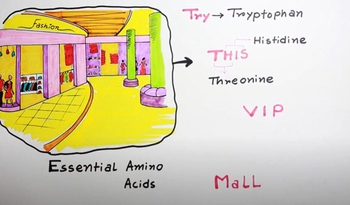 Fashion
Try → Tryptophan
Histidine
THIS
Threonine
VIP
Essential Amino
Acids
Mall